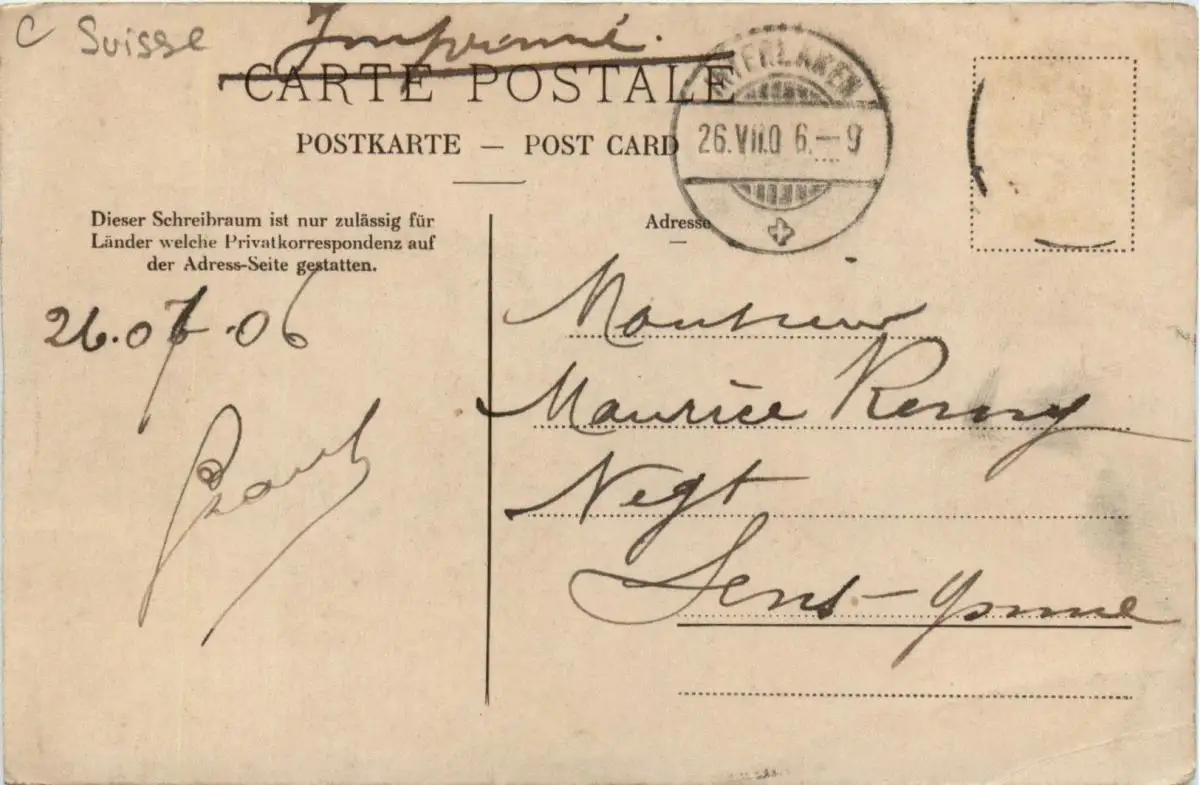 C Suisse
Imprimé.
CARTE POSTALE
POSTKARTE — POST CARD
INTERLAKEN
26.VII.06.—9
Dieser Schreibraum ist nur zulässig für
Länder welche Privatkorrespondenz auf
der Adress-Seite gestatten.
Adresse
26.07.06
Monsieur
Maurice Remy
Negt
Sens-Yonne